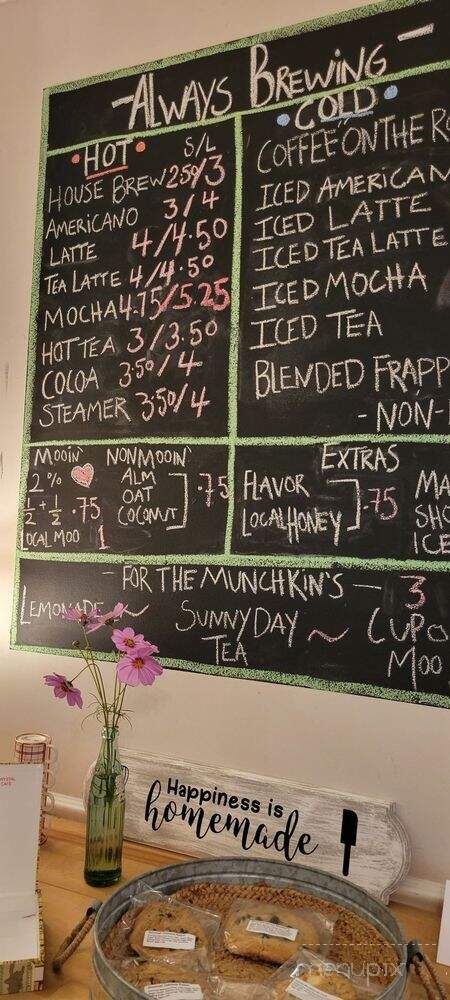 ALWAYS BREWING
HOT S/L
HOUSE BREW 2.50/3
AMERICANO 3/4
LATTE 4/4.50
TEA LATTE 4/4.50
MOCHA 4.75/5.25
HOT TEA 3/3.50
COCOA 3.50/4
STEAMER 3.50/4
COLD
COFFEE "ON THE RO
ICED AMERICAN
ICED LATTE
ICED TEA LATTE
ICED MOCHA
ICED TEA
BLENDED FRAPP
- NON-
MOOIN'
2%
½ + ½ .75
LOCAL MOO 1
NONMOOIN'
ALM
OAT
COCONUT
.75
EXTRAS
FLAVOR
LOCAL HONEY
.75
MA
SHO
ICE
- FOR THE MUNCHKIN'S - 3
LEMONADE ~ SUNNY DAY TEA ~ CUP O
MOO
Happiness is
homemade
menupix